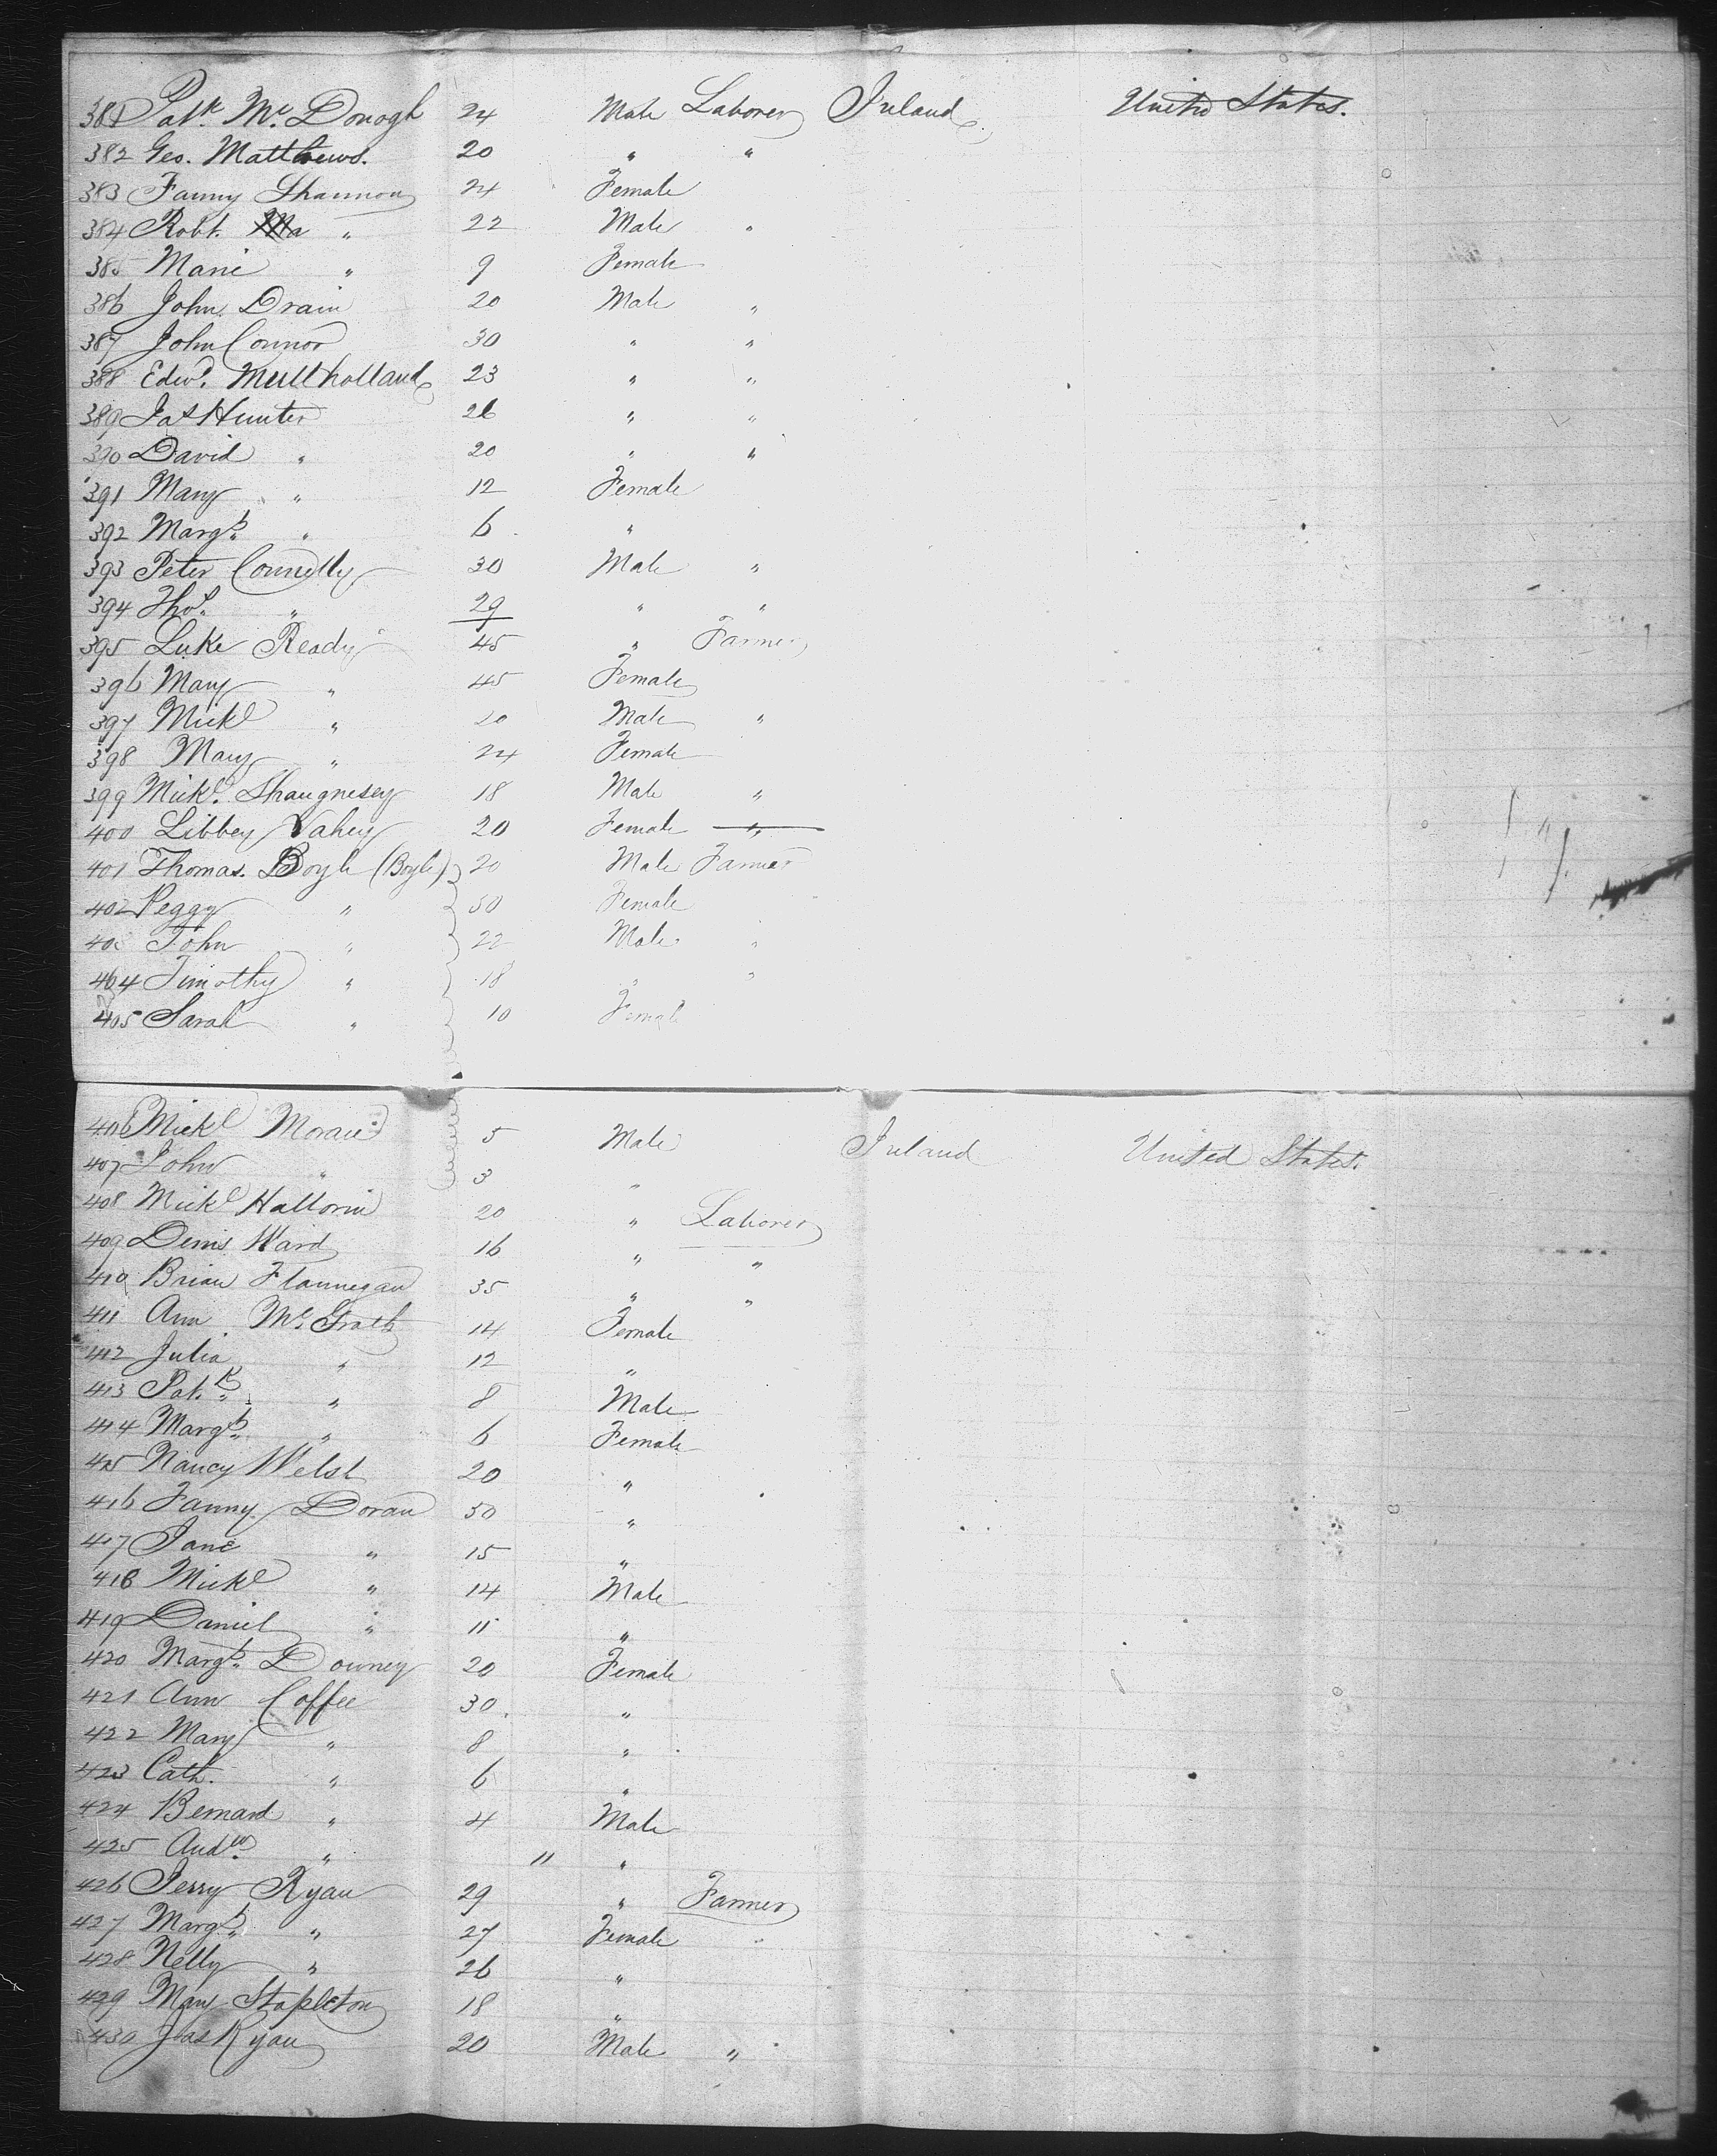 381 Patk. Mc. Donogh 24 Male Laborer Ireland United States.
382 Geo. Matthews. 20 " "
383 Fanny Shannon 24 Female
384 Robt. " 22 Male "
385 Marie " 9 Female
386 John Drain 20 Male "
387 John Connor 30 " "
388 Edwd. Mullholland 23 " "
389 Jas Hunter 26 " "
390 David " 20 " "
391 Mary " 12 Female
392 Margt. " 6 "
393 Peter Connelly 30 Male "
394 Thos. " 29 " "
395 Luke Ready 45 " Farmer
396 Mary " 45 Female
397 Mickl " 20 Male "
398 Mary " 24 Female
399 Mickl. Shaugnesey 18 Male "
400 Libbey Vahey 20 Female "
401 Thomas. Boyle (Boyle) 20 Male Farmer
402 Peggy " 50 Female
403 John " 22 Male "
404 Timothy " 18 " "
405 Sarah " 10 Female
406 Mickl Moran 5 Male Ireland United States.
407 John " 3 "
408 Mickl Hallorin 20 " Laborer
409 Denis Ward 16 " "
410 Brian Flannegan 35 " "
411 Ann Mc. Grath 14 Female
412 Julia " 12 "
413 Patk. " 8 Male
414 Margt. " 6 Female
415 Nancy Welsh 20 "
416 Fanny Doran 50 "
417 Jane " 15 "
418 Mickl " 14 Male
419 Daniel " 11 "
420 Margt. Downey 20 Female
421 Ann Coffee 30 "
422 Mary " 8 "
423 Cath. " 6 "
424 Bernard " 4 Male
425 Andw. " 11 "
426 Jerry Ryan 29 " Farmer
427 Margt. " 27 Female
428 Nelly " 26 "
429 Mary Stapleton 18 "
430 Jas Ryan 20 Male "